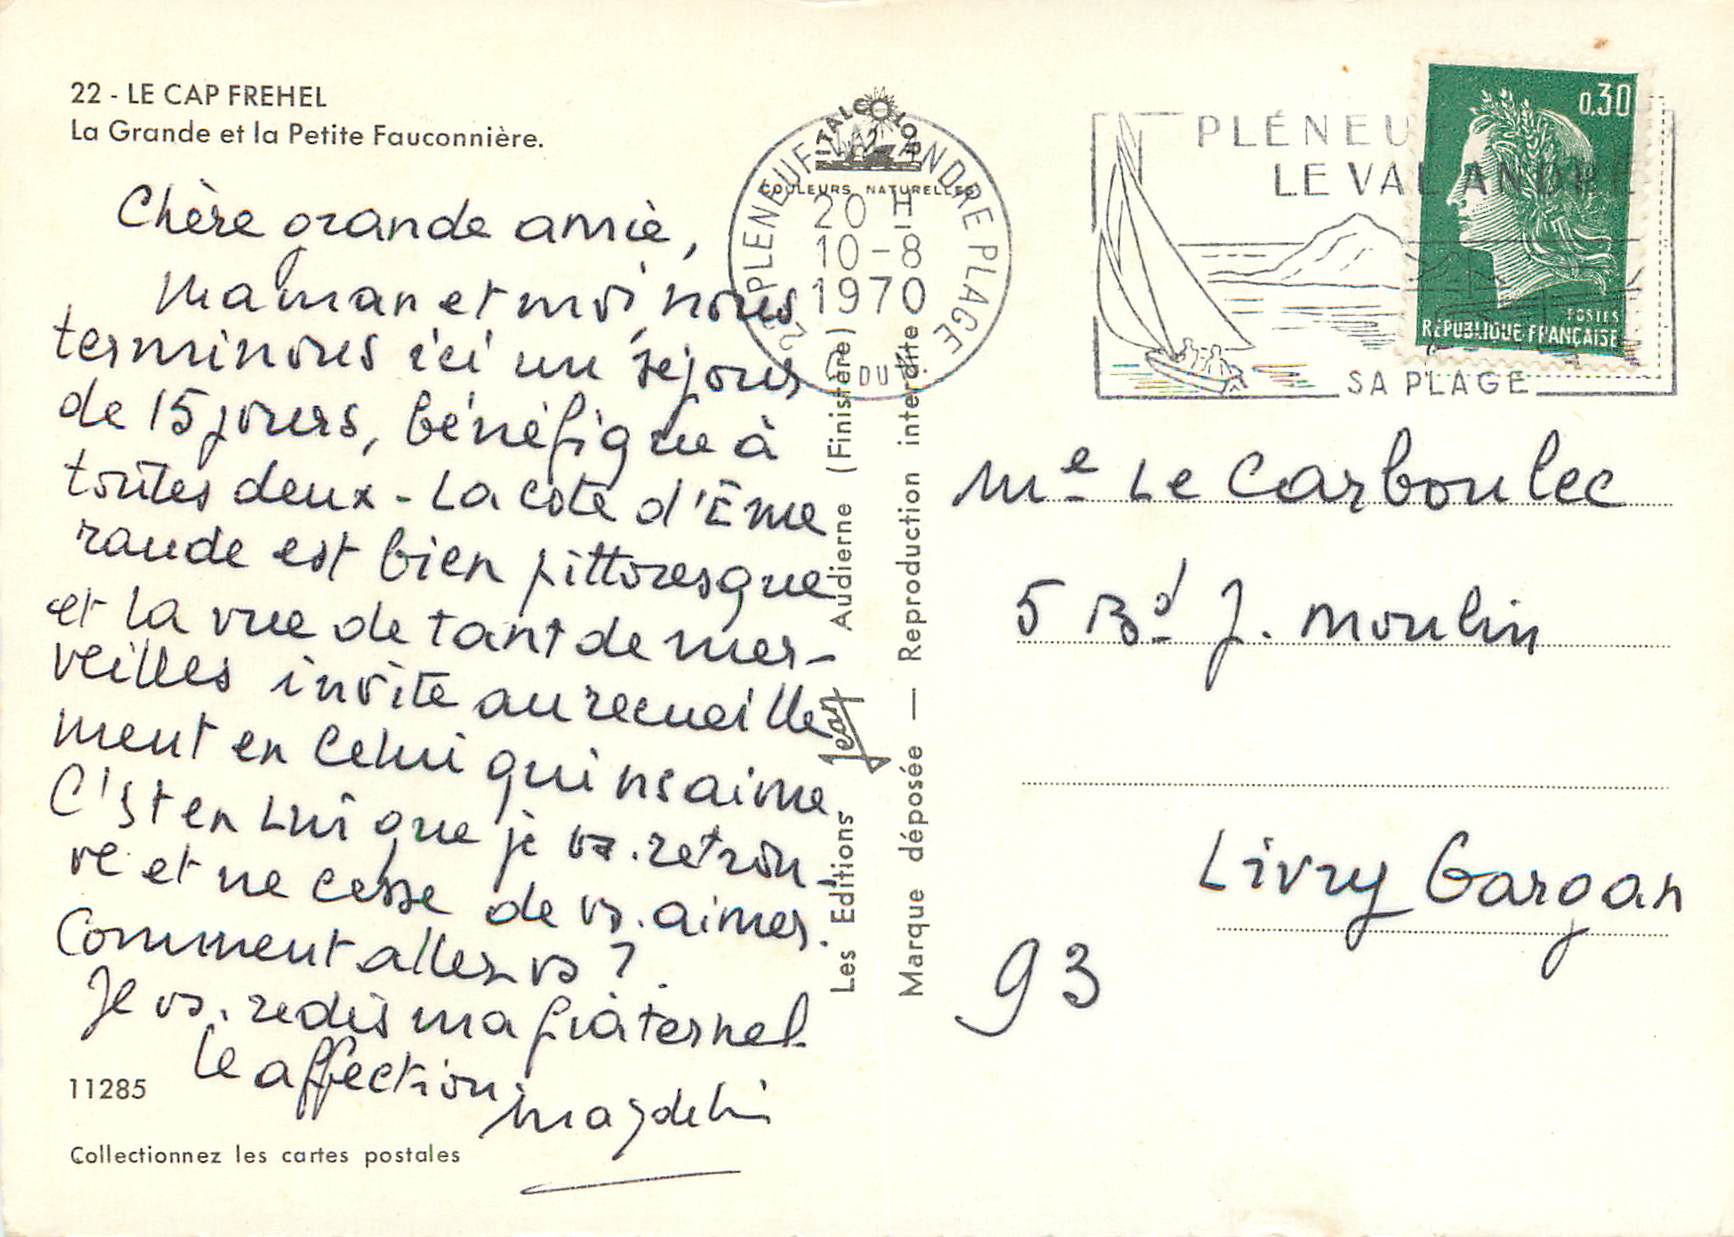 22 - LE CAP FREHEL
La Grande et la Petite Fauconnière.
Chère grande amie,
Maman et moi, nous
terminons ici un séjour
de 15 jours, bénéfique à
toutes deux - La côte d'Éme
raude est bien pittoresque
et la vue de tant de mer-
veilles invite au recueille
ment en Celui qui ns aime
C'est en Lui que je vs. retrou-
ve et ne cesse de vs. aimer.
Comment allez vs ?
Je vs. redis ma fraternel
le affection
11285
Collectionnez les cartes postales
ITALCOLOR
COULEURS NATURELLES
22 PLENEUF-VAL-ANDRE PLAGE
20 H
10-8
1970
C. DU N.
Les Editions Jean Audierne (Finistère)
Marque déposée — Reproduction interdite
PLÉNEU
LE VAL ANDRÉ
SA PLAGE
0,30
POSTES
REPUBLIQUE FRANÇAISE
Me Le Carboulec
5 Bd J. Moulin
Livry Gargan
93